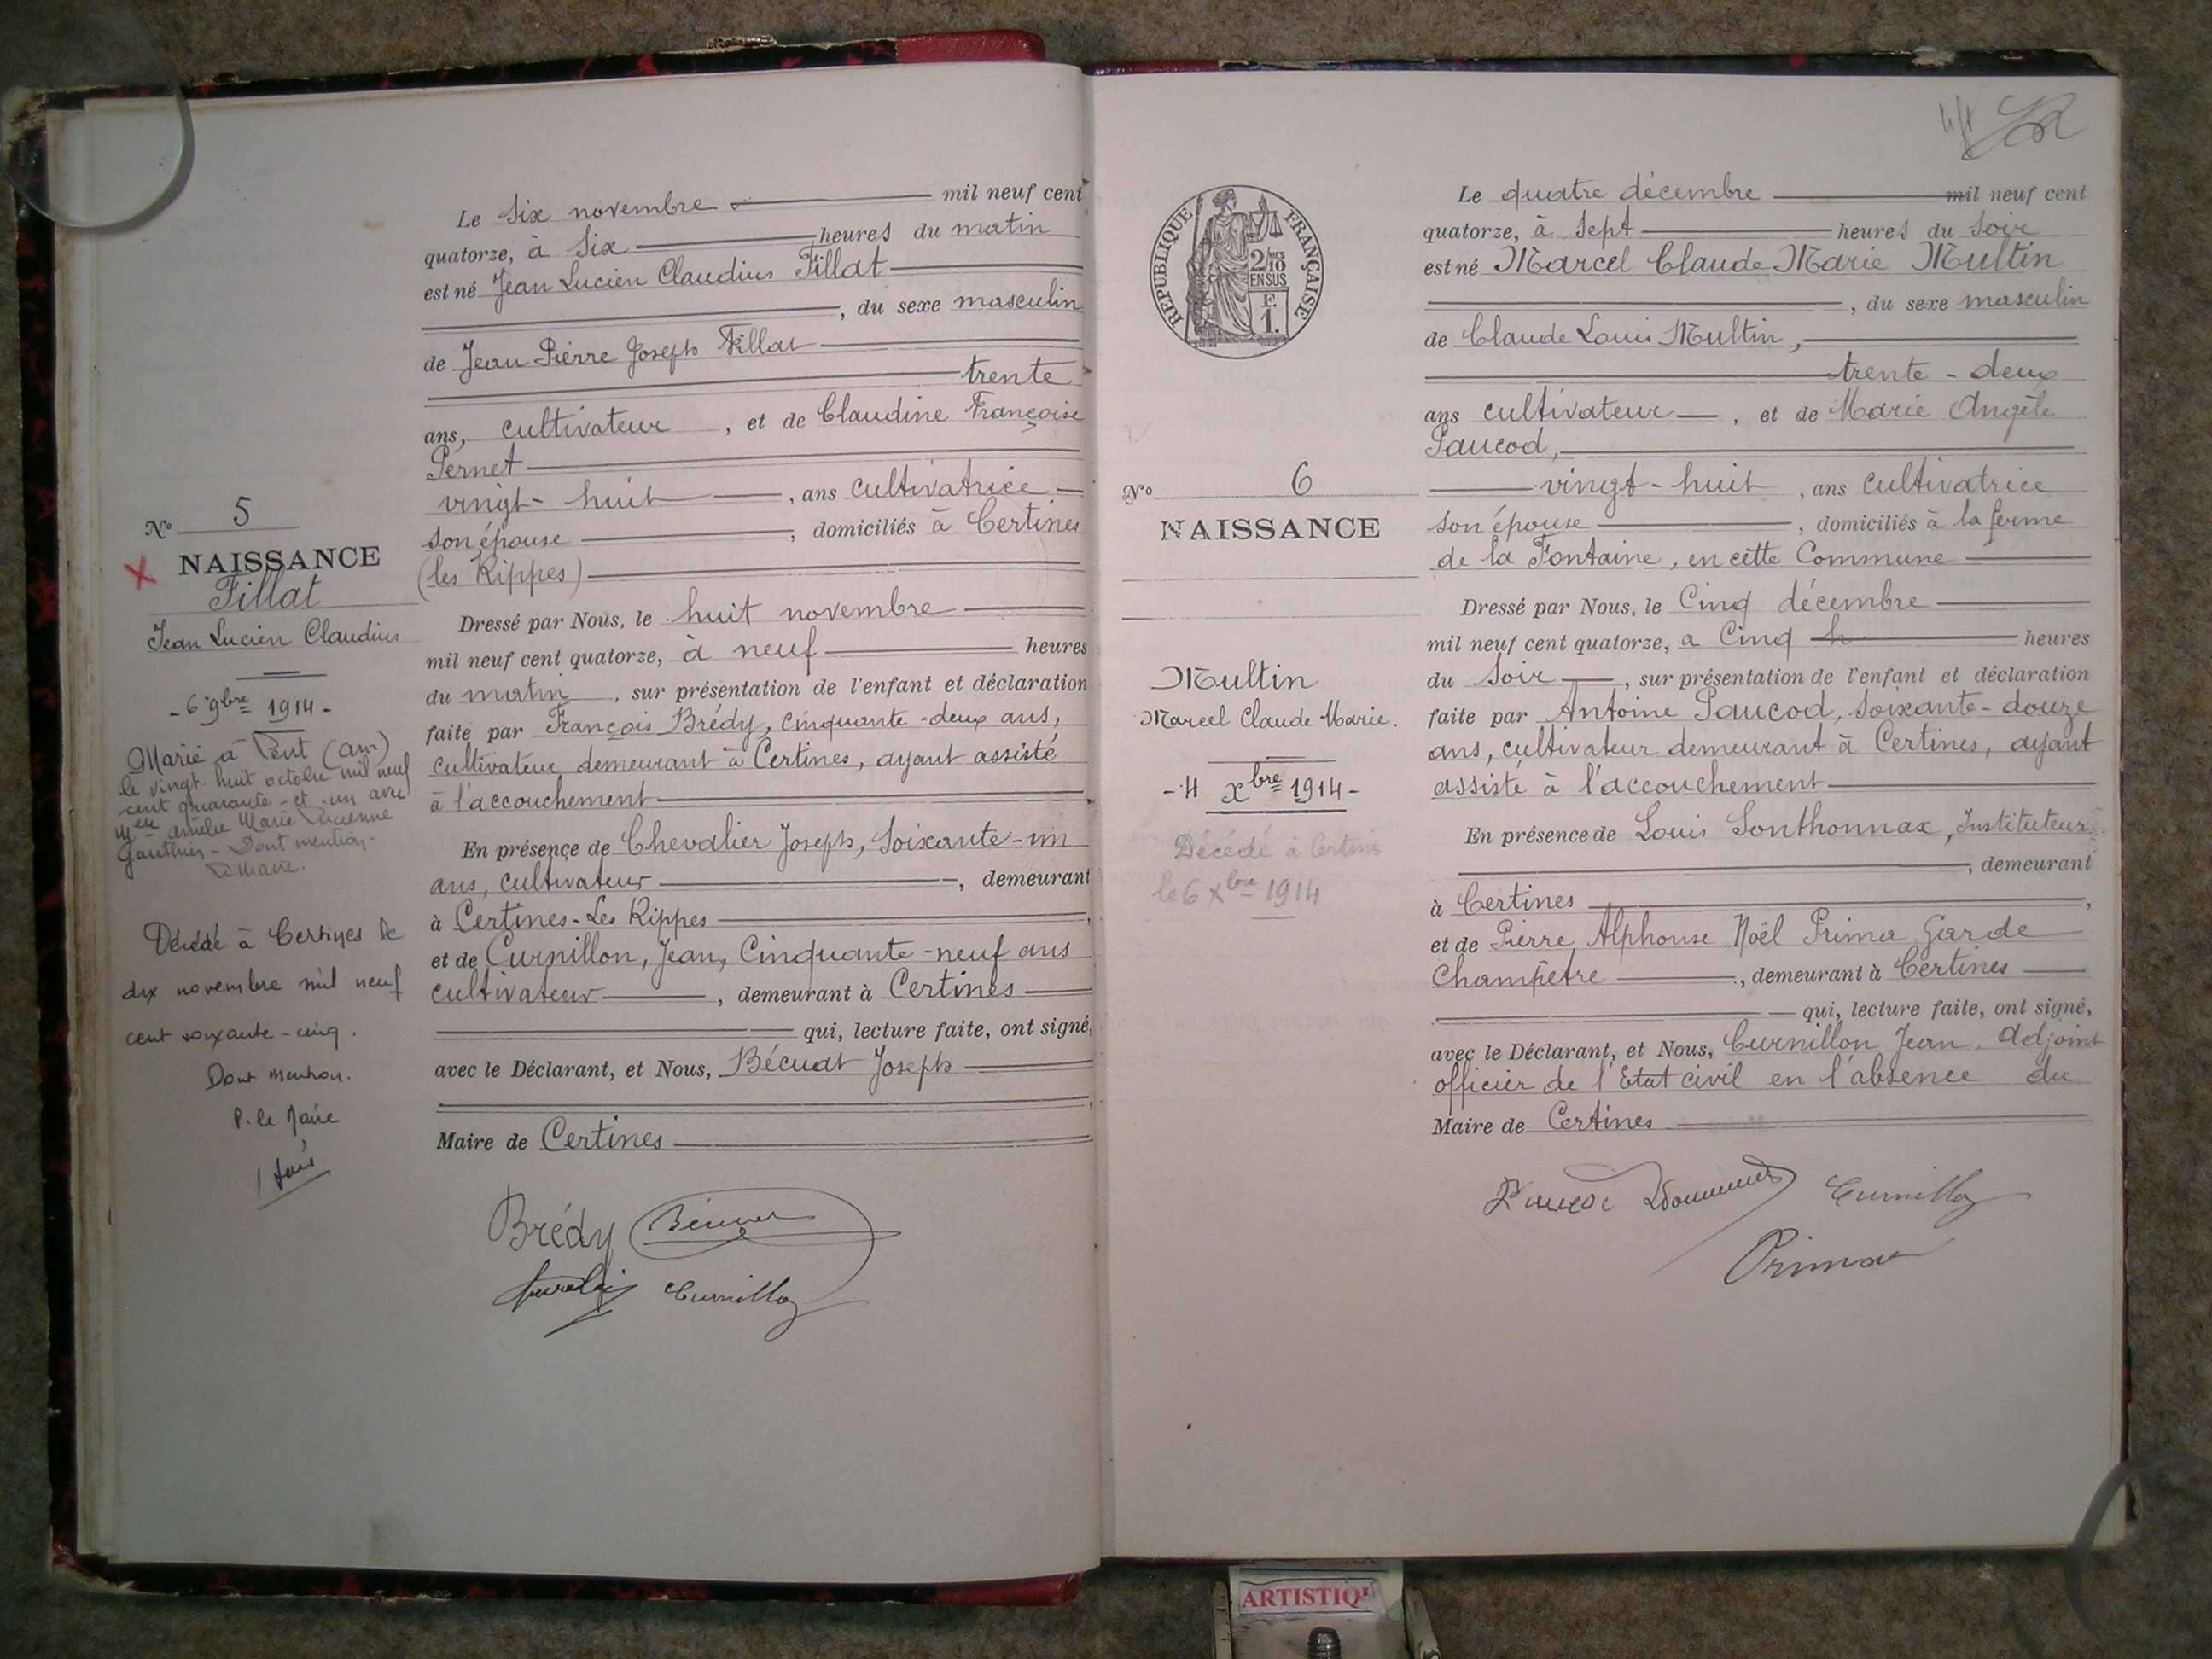 N° 5
NAISSANCE
Fillat
Jean Lucien Claudius
- 6 9bre 1914 -
Marié à Pont (Ain)
le vingt huit octobre mil neuf
cent quarante-et-un avec
Melle Amélie Marie Lucienne
Gauthier - Dont mention
Le Maire.
Décédé à Certines le
dix novembre mil neuf
cent soixante-cinq.
Dont mention.
P. le Maire
Le six novembre mil neuf cent
quatorze, à six heures du matin
est né Jean Lucien Claudius Fillat
, du sexe masculin
de Jean Pierre Joseph Fillat
trente
ans, cultivateur, et de Claudine Françoise
Pernet
vingt-huit, ans cultivatrice
son épouse, domiciliés à Certines
(les Rippes)
Dressé par Nous, le huit novembre
mil neuf cent quatorze, à neuf heures
du matin, sur présentation de l'enfant et déclaration
faite par François Brédy, cinquante-deux ans,
cultivateur demeurant à Certines, ayant assisté
à l'accouchement
En présence de Chevalier Joseph, soixante-un
ans, cultivateur, demeurant
à Certines-Les Rippes,
et de Curnillon, Jean, Cinquante-neuf ans
cultivateur, demeurant à Certines
qui, lecture faite, ont signé,
avec le Déclarant, et Nous, Bécuat Joseph
,
Maire de Certines
Brédy Bécuat
Curnillon
REPUBLIQUE FRANÇAISE
2/10
EN SUS
F.
1.
N° 6
NAISSANCE
Multin
Marcel Claude Marie.
- 4 xbre 1914 -
Décédé à Certines
le 6 Xbre 1914
Le quatre décembre mil neuf cent
quatorze, à sept heures du soir
est né Marcel Claude Marie Multin
, du sexe masculin
de Claude Louis Multin,
trente-deux
ans cultivateur, et de Marie Angèle
Paucod,
vingt-huit, ans cultivatrice
son épouse, domiciliés à la ferme
de la Fontaine, en cette Commune
Dressé par Nous, le Cinq décembre
mil neuf cent quatorze, a Cinq h heures
du soir, sur présentation de l'enfant et déclaration
faite par Antoine Paucod, soixante-douze
ans, cultivateur demeurant à Certines, ayant
assisté à l'accouchement
En présence de Louis Sonthonnax, Instituteur
, demeurant
à Certines,
et de Pierre Alphonse Noël Prima Garde
Champêtre, demeurant à Certines
qui, lecture faite, ont signé,
avec le Déclarant, et Nous, Curnillon Jean, Adjoint
officier de l'Etat civil en l'absence du
Maire de Certines
Paucod Curnillon
Prima
ARTISTIQ